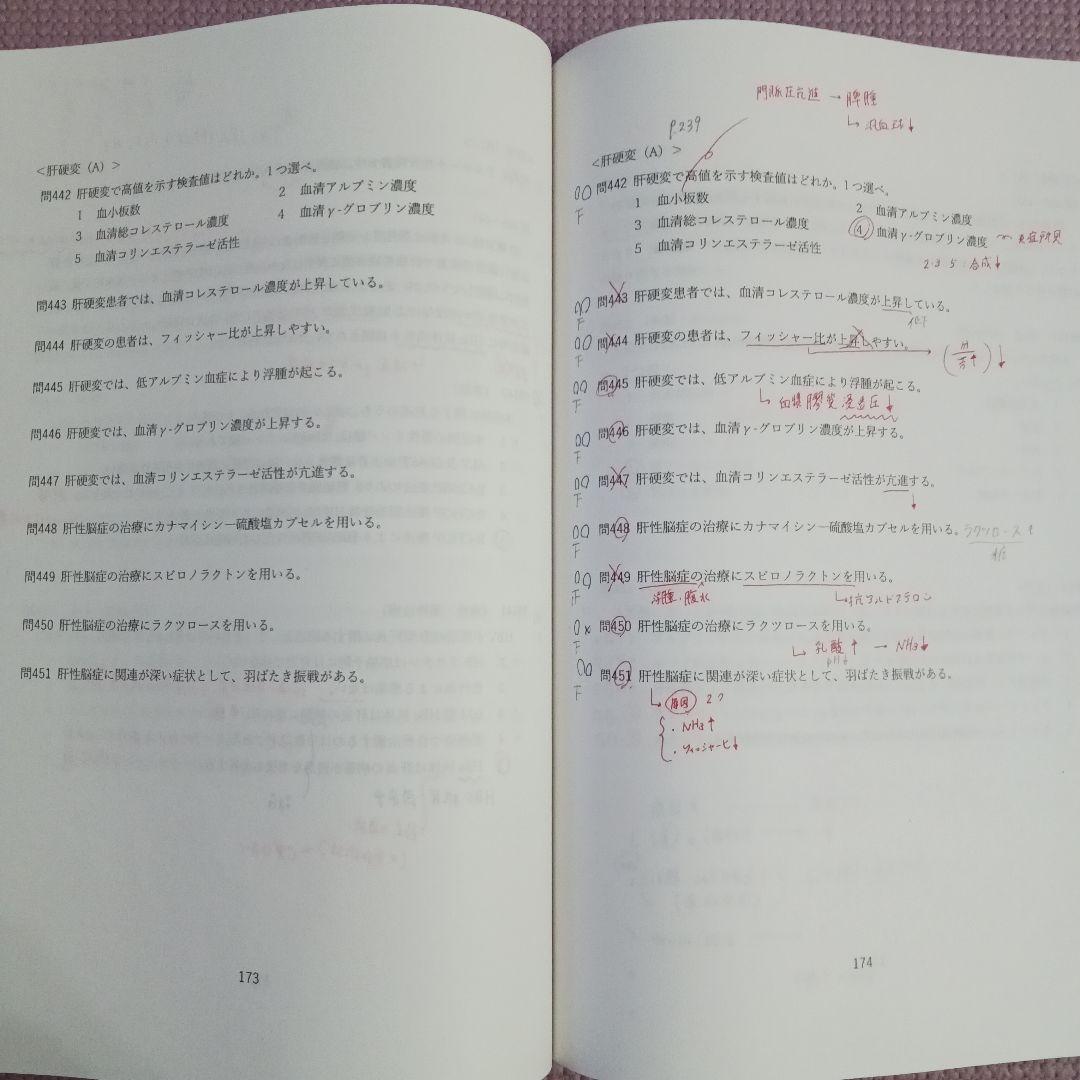 <肝硬変（A）>
問442 肝硬変で高値を示す検査値はどれか。1つ選べ。
1 血小板数 2 血清アルブミン濃度
3 血清総コレステロール濃度 4 血清γ-グロブリン濃度
5 血清コリンエステラーゼ活性
問443 肝硬変患者では、血清コレステロール濃度が上昇している。
問444 肝硬変の患者は、フィッシャー比が上昇しやすい。
問445 肝硬変では、低アルブミン血症により浮腫が起こる。
問446 肝硬変では、血清γ-グロブリン濃度が上昇する。
問447 肝硬変では、血清コリンエステラーゼ活性が亢進する。
問448 肝性脳症の治療にカナマイシン一硫酸塩カプセルを用いる。
問449 肝性脳症の治療にスピロノラクトンを用いる。
問450 肝性脳症の治療にラクツロースを用いる。
問451 肝性脳症に関連が深い症状として、羽ばたき振戦がある。
173
門脈圧亢進 → 脾腫
↳ 汎血球↓
P.239
<肝硬変（A）>
問442 肝硬変で高値を示す検査値はどれか。1つ選べ。
F
1 血小板数 2 血清アルブミン濃度
3 血清総コレステロール濃度 ④ 血清γ-グロブリン濃度 炎症所見
5 血清コリンエステラーゼ活性 2・3・5：合成↓
問443 肝硬変患者では、血清コレステロール濃度が上昇している。
F 低下
問444 肝硬変の患者は、フィッシャー比が上昇しやすい。 → 芳↑ ↓
F
問445 肝硬変では、低アルブミン血症により浮腫が起こる。
F ↳ 血漿膠質浸透圧↓
問446 肝硬変では、血清γ-グロブリン濃度が上昇する。
F
問447 肝硬変では、血清コリンエステラーゼ活性が亢進する。
F ↓
問448 肝性脳症の治療にカナマイシン一硫酸塩カプセルを用いる。 ラクツロース
F
問449 肝性脳症の治療にスピロノラクトンを用いる。
F 浮腫・腹水 ↳抗アルドステロン
× 問450 肝性脳症の治療にラクツロースを用いる。
F ↳ 乳酸↑ → NH₃↓
pH↓
問451 肝性脳症に関連が深い症状として、羽ばたき振戦がある。
F ↳ 原因 2つ
・NH₃↑
・フィッシャー比↓
174